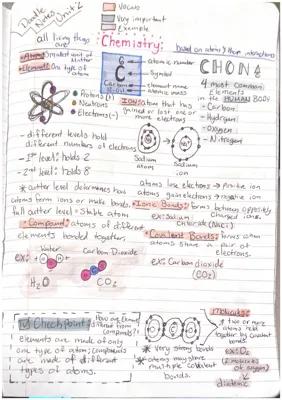 Doodle Notes
Unit 2
Vocab
Very important
Example
all living things are
Chemistry:
based on atoms & their interactions
Atom: Smallest unit of matter
Element: One type of atom
6
C
Carbon
atomic number
Symbol
element name
atomic mass
CHON
4 most common elements in the HUMAN BODY
- Carbon
- Hydrogen
- Oxygen
- Nitrogen
Protons (+)
Neutrons
Electrons (-)
ION: atom that has gained or lost one or more electrons
Sodium atom
Sodium ion
- different levels hold different numbers of electrons
- 1st level: holds 2
- 2nd level: holds 8
* outter level determines how atoms form ions or make bonds.
full outter level = Stable atom
atoms lose electrons → positive ion
atoms gain electrons → negative ion
• Ionic Bonds: forms between oppositely charged ions.
ex: Sodium Chloride (NaCl)
• Compound: atoms of different elements bonded together.
• Covalent Bonds: forms when atoms share a pair of electrons.
ex: Carbon dioxide (CO2)
ex:
Water
H2O
Carbon Dioxide
CO2
Check Point:
How are elements different from compounds?
elements are made of only one type of atom; compounds are made of different types of atoms.
* Very strong bonds
* atoms may share multiple covalent bonds.
Molecules:
two or more atoms held together by covalent bonds
ex: O2
(2 molecules of oxygen)
diatomic